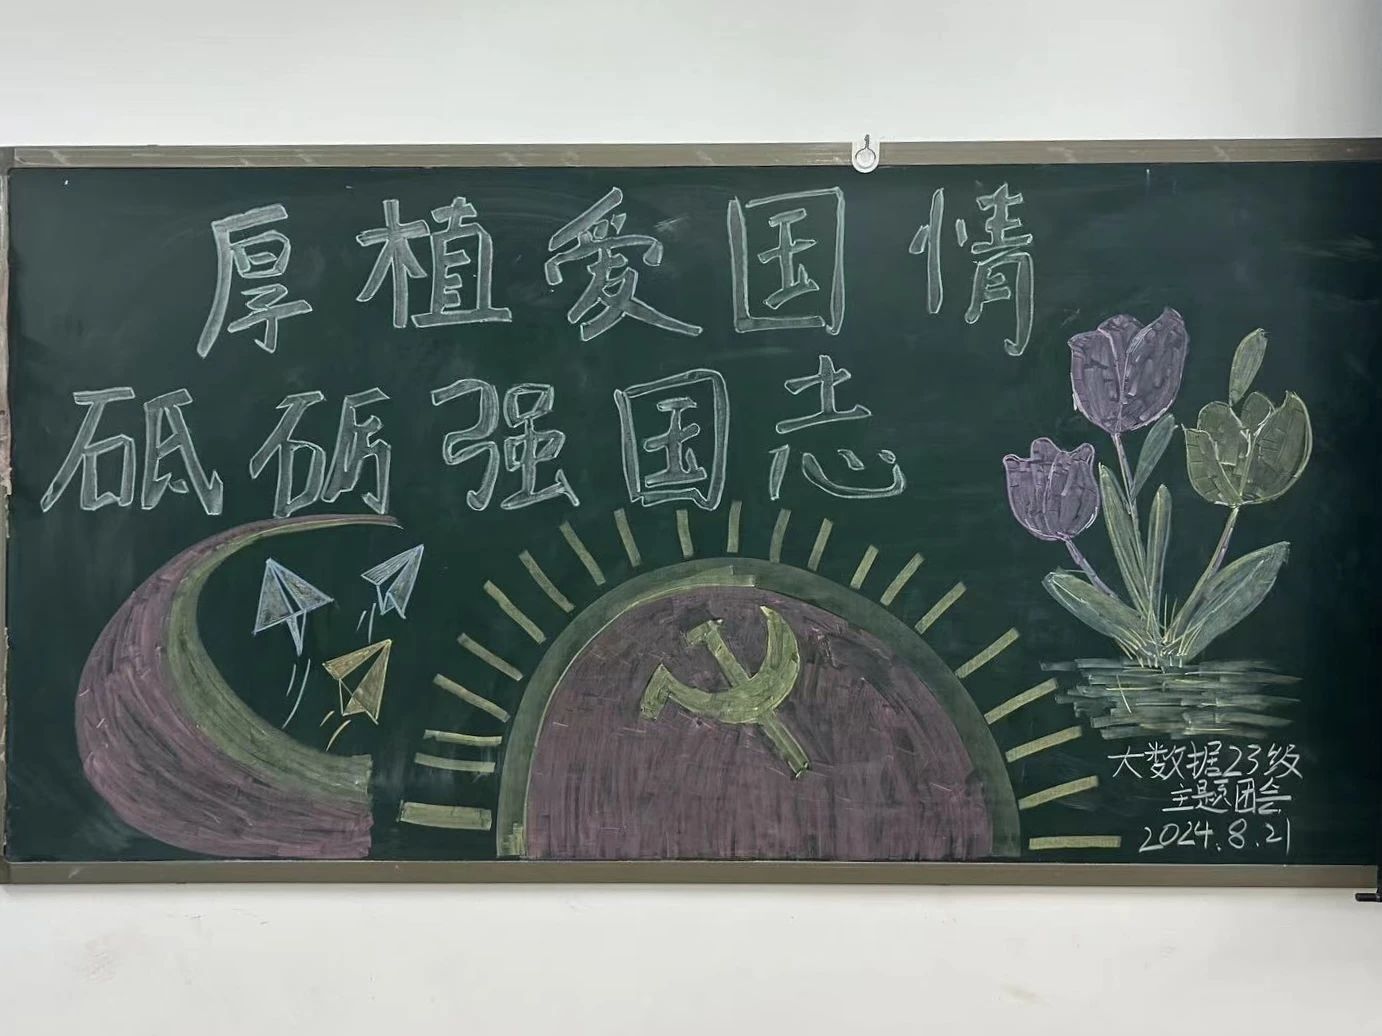 厚植爱国情
砥砺强国志
大数据23级
主题团会
2024.8.21